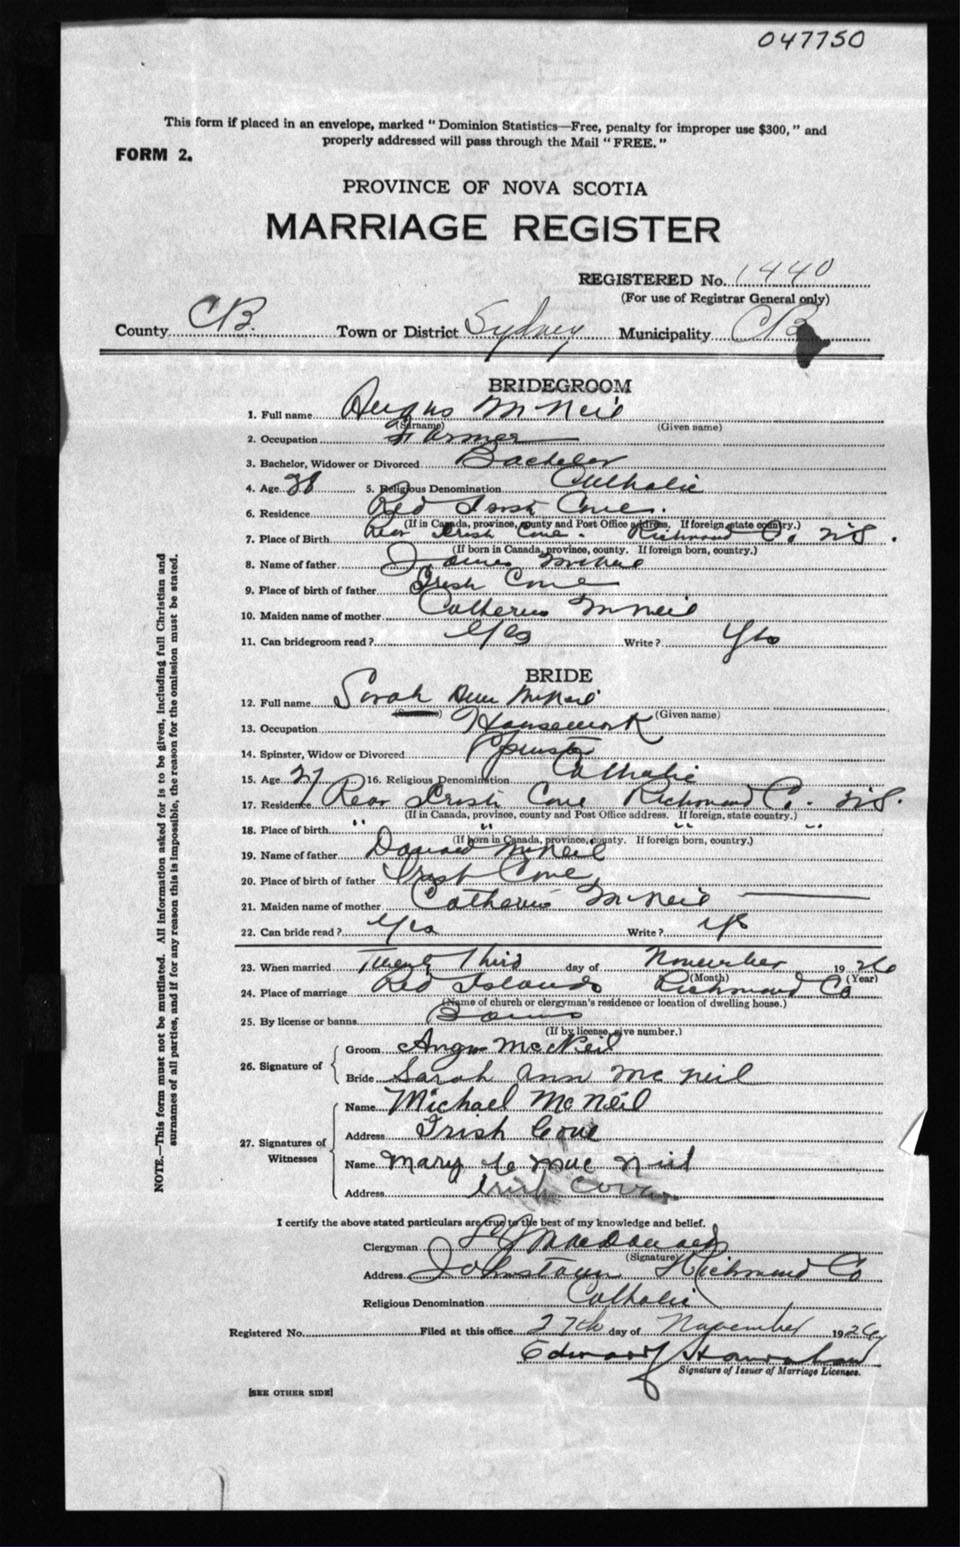 047750
This form if placed in an envelope, marked "Dominion Statistics—Free, penalty for improper use $300," and
properly addressed will pass through the Mail "FREE."
FORM 2.
PROVINCE OF NOVA SCOTIA
MARRIAGE REGISTER
REGISTERED No. 1440
(For use of Registrar General only)
County C B. Town or District Sydney Municipality C B
BRIDEGROOM
1. Full name Angus McNeil
(Surname) (Given name)
2. Occupation Farmer
3. Bachelor, Widower or Divorced Bachelor
4. Age 28 5. Religious Denomination Catholic
6. Residence Red Irish Cove.
(If in Canada, province, county and Post Office address. If foreign, state country.)
7. Place of Birth Rear Irish Cove. Richmond Co. N.S.
(If born in Canada, province, county. If foreign born, country.)
8. Name of father James McNeil
9. Place of birth of father Irish Cove
10. Maiden name of mother Catherine McNeil
11. Can bridegroom read? Yes Write? Yes
BRIDE
12. Full name Sarah Ann McNeil
(Given name)
13. Occupation Housework
14. Spinster, Widow or Divorced Spinster
15. Age 27 16. Religious Denomination Catholic
17. Residence Rear Irish Cove Richmond Co. N.S.
(If in Canada, province, county and Post Office address. If foreign, state country.)
18. Place of birth " " " "
(If born in Canada, province, county. If foreign born, country.)
19. Name of father Donald McNeil
20. Place of birth of father Irish Cove
21. Maiden name of mother Catherine McNeil
22. Can bride read? Yes Write? Yes
23. When married Twenty Third day of November 1926
(Month) (Year)
24. Place of marriage Red Islands Richmond Co
(Name of church or clergyman's residence or location of dwelling house.)
25. By license or banns Banns
(If by license, give number.)
26. Signature of
Groom Angus McNeil
Bride Sarah Ann McNeil
27. Signatures of Witnesses
Name Michael McNeil
Address Irish Cove
Name Mary C MacNeil
Address Irish Cove
I certify the above stated particulars are true to the best of my knowledge and belief.
Clergyman MacDonald
(Signature)
Address Johnstown Richmond Co
Religious Denomination Catholic
Registered No. Filed at this office 27th day of November 1926
Edward Hanrahan
Signature of Issuer of Marriage Licenses.
[SEE OTHER SIDE]
NOTE.—This form must not be mutilated. All information asked for is to be given, including full Christian and
surnames of all parties, and if for any reason this is impossible, the reason for the omission must be stated.